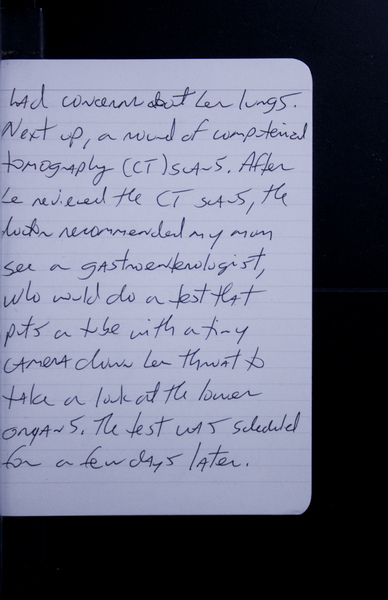 had concerns about her lungs.
Next up, a round of computerized
tomography (CT) scans. After
he reviewed the CT scans, the
doctor recommended my mom
see a gastroenterologist,
who would do a test that
puts a tube with a tiny
camera down her throat to
take a look at the lower
organs. The test was scheduled
for a few days later.